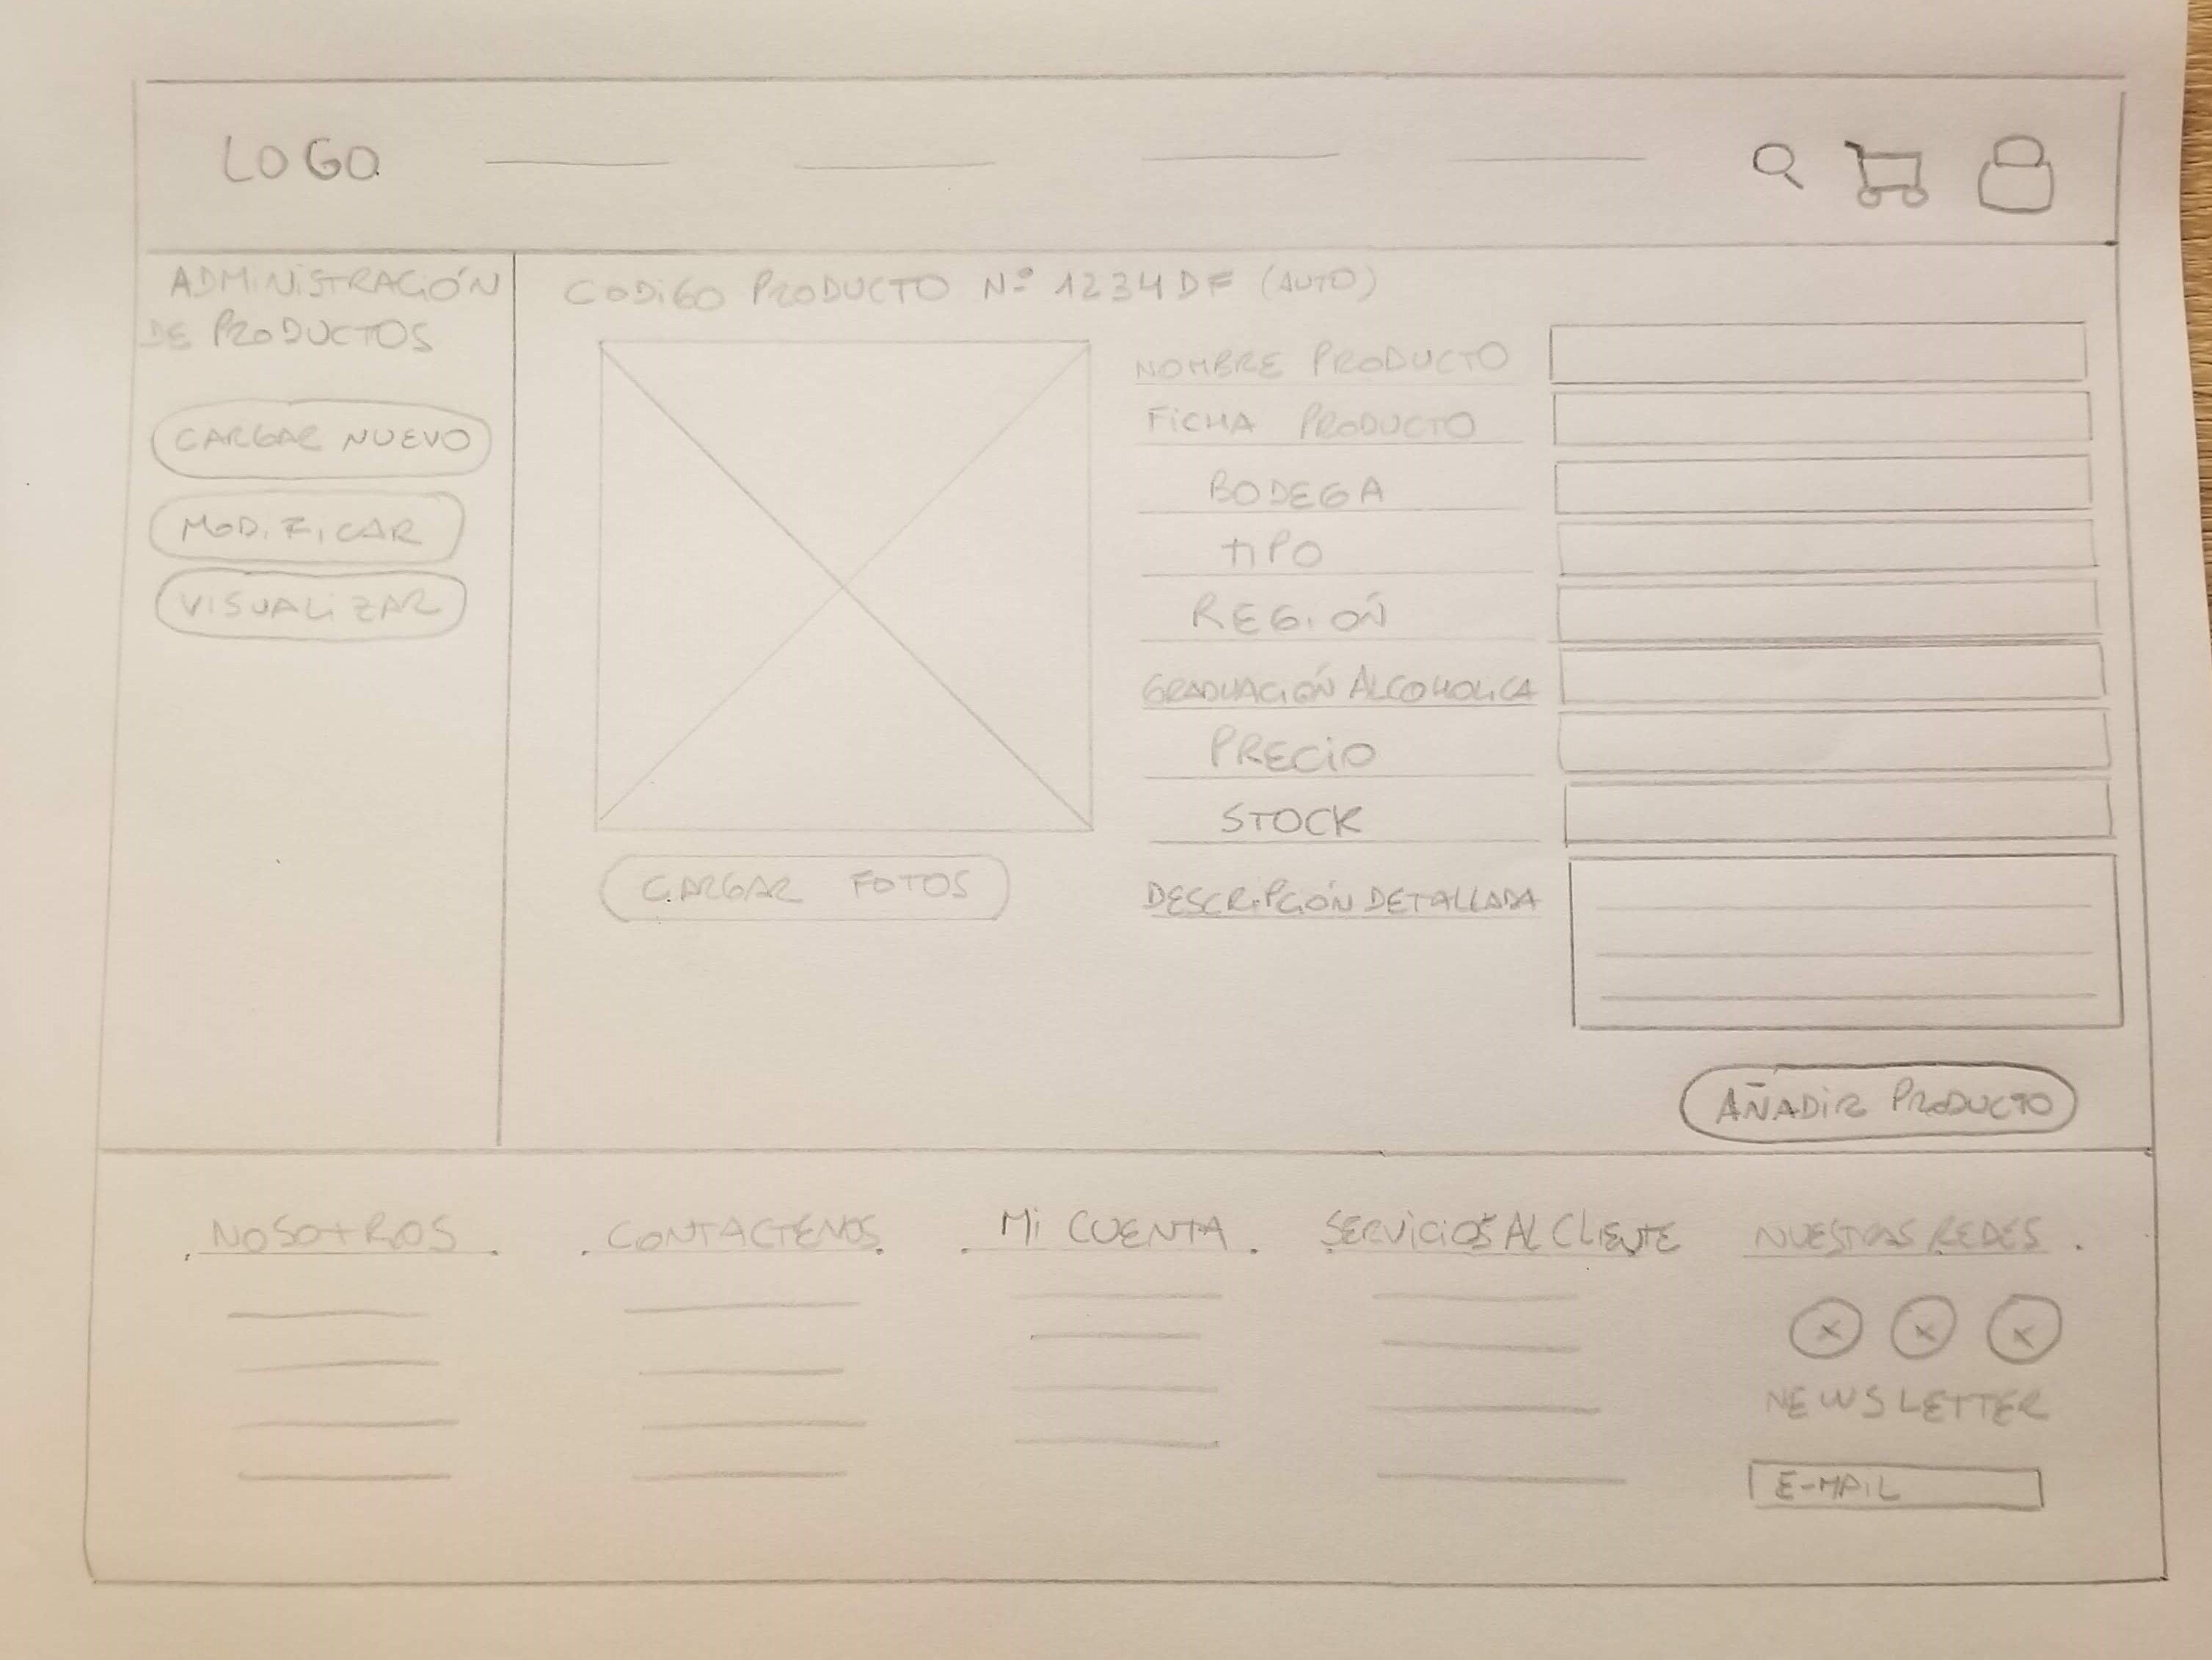 LOGO
ADMINISTRACIÓN
DE PRODUCTOS
CARGAR NUEVO
MODIFICAR
VISUALIZAR
CODIGO PRODUCTO Nº 1234DF (AUTO)
CARGAR FOTOS
NOMBRE PRODUCTO
FICHA PRODUCTO
BODEGA
TIPO
REGIÓN
GRADUACIÓN ALCOHOLICA
PRECIO
STOCK
DESCRIPCIÓN DETALLADA
AÑADIR PRODUCTO
NOSOTROS
CONTACTENOS
MI CUENTA
SERVICIOS AL CLIENTE
NUESTRAS REDES
NEWSLETTER
E-MAIL